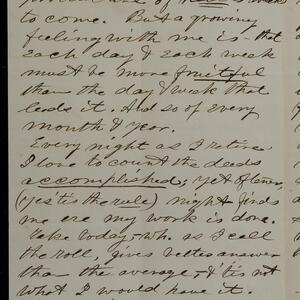 to come. But a growing
feeling with me is - that
each day & each week
must be more fruitful
than the day & week that
leads it. And so of every
month & year.
Every night as I retire
I love to count the deeds
accomplished; yet often
(yes 'tis the rule) night finds
me ere my work is done.
Take today, - wh. as I call
the roll, gives better answer
than the average, - & 'tis not
what I would have it.